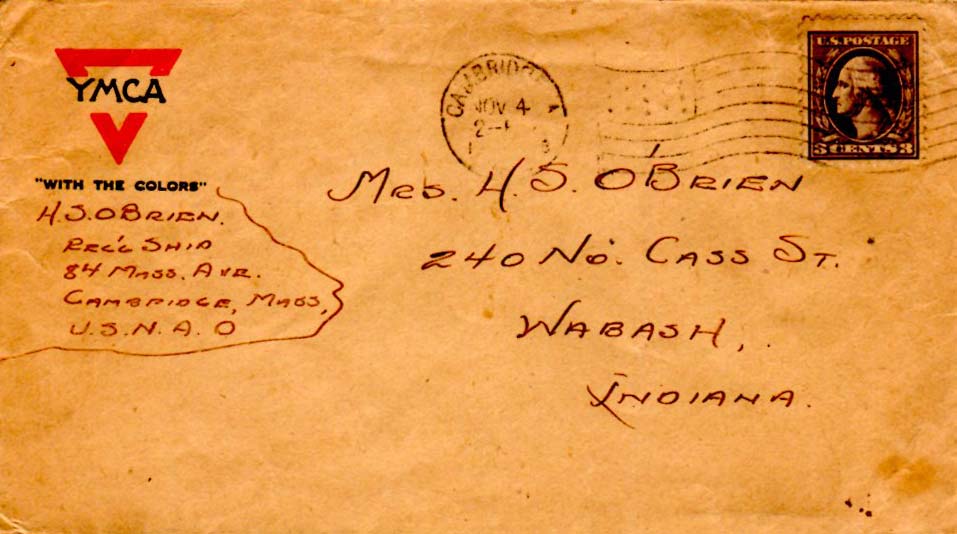 YMCA
"WITH THE COLORS"
H.S.OBRIEN.
REC'G SHIP
84 MASS. AVE.
CAMBRIDGE, MASS,
U.S.N.A.O
CAMBRIDGE A
NOV 4
2-
U.S. POSTAGE
3 CENTS 3
MRS. H. S. O'BRIEN
240 NO. CASS ST.
WABASH,
INDIANA.